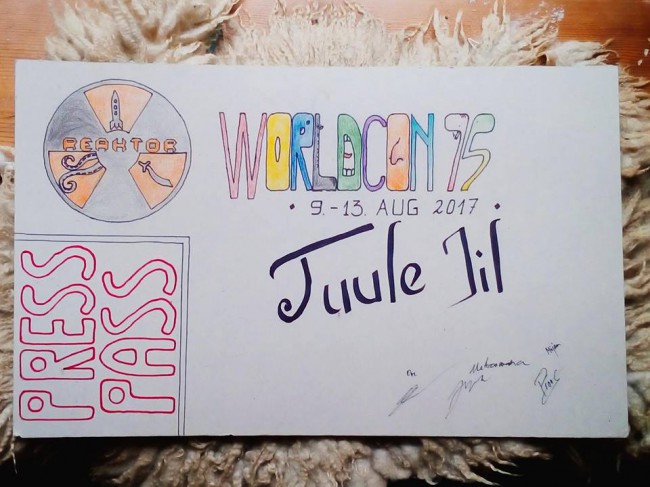 REAKTOR
WORLDCON 75
• 9.-13. AUG 2017 •
Tuule Jil
PRESS
PASS